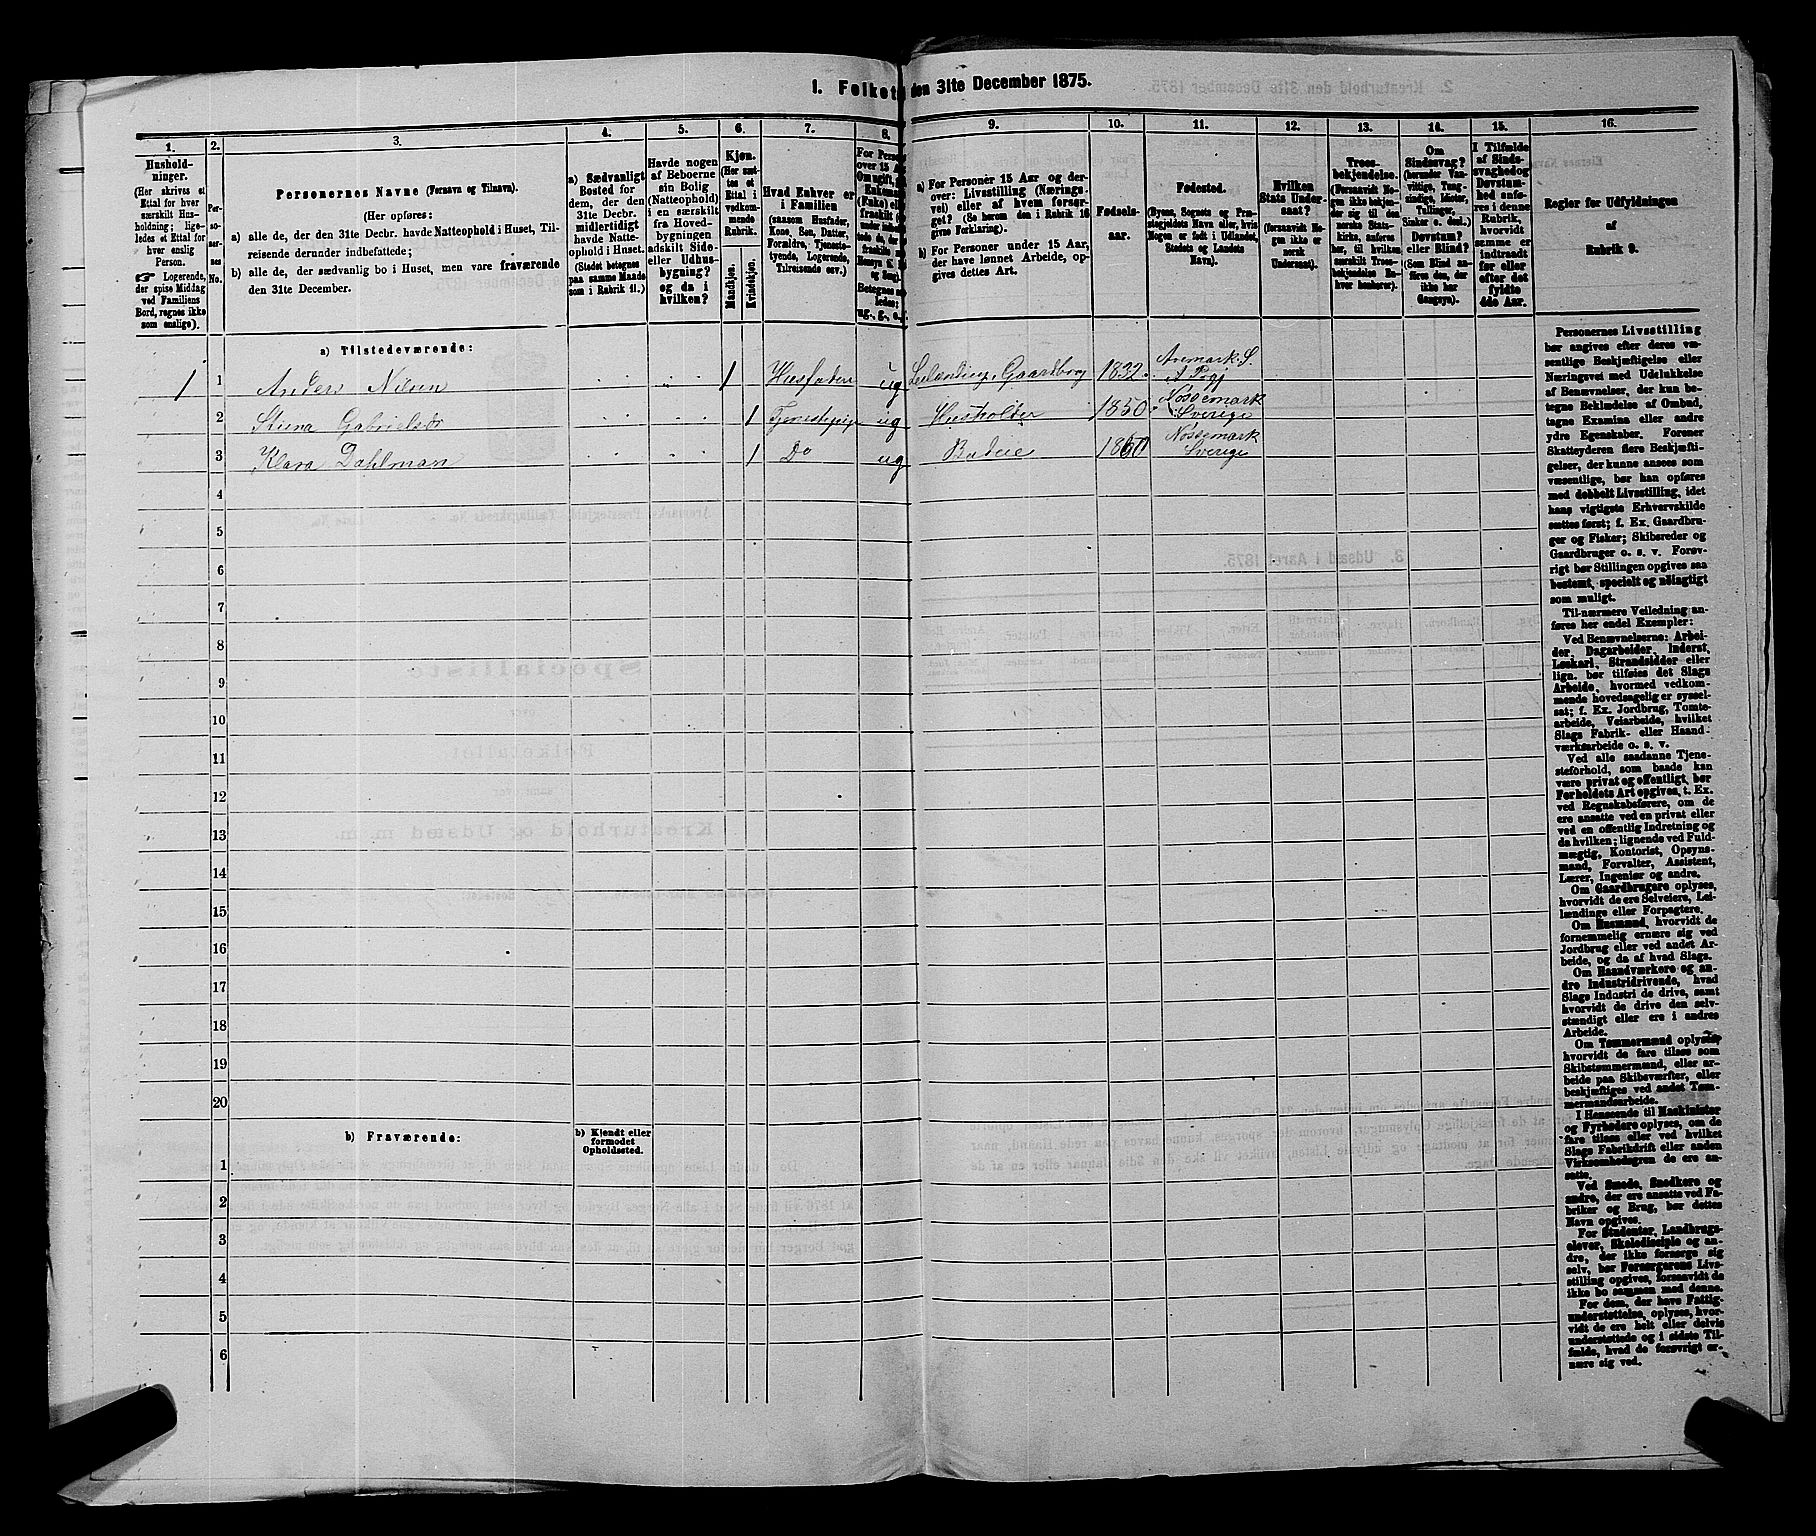 1. Folket den 31te December 1875.
1. 2. 3. 4. 5. 6. 7. 8. 9. 10. 11. 12. 13. 14. 15. 16.
Hushold-
ninger.
(Her skrives et
Ettal for hver
særskilt Hus-
holdning; lige-
ledes et Ettal for
hver enslig
Person.
☞ Logerende,
der spise Middag
ved Familiens
Bord, regnes ikke
som enslige).
Per-
so-
ner-
nes
No.
Personernes Navne (Fornavn og Tilnavn).
(Her opføres:
a) alle de, der den 31te Decbr. havde Natteophold i Huset, Til-
reisende derunder indbefattede;
b) alle de, der sædvanlig bo i Huset, men vare fraværende
den 31te December.
a) Sædvanligt
Bosted for
dem, der den
31te Decbr.
midlertidigt
havde Natte-
ophold i Huset.
(Stedet betegnes
paa samme Maade
som i Rubrik 11.)
Havde nogen
af Beboerne
sin Bolig
(Natteophold)
i en særskilt
fra Hoved-
bygningen
adskilt Side-
eller Udhus-
bygning?
og da i
hvilken?
Kjøn.
(Her sæt-
tes et
Ettal i
vedkom-
mende
Rubrik.
Mandkjøn.
Kvindekjøn.
Hvad Enhver er
i Familien
(saasom Husfader,
Kone, Søn, Datter,
Forældre, Tjeneste-
tyende, Logerende,
Tilreisende osv.)
For Perso
over 15 a
Om ugift, g
Enkema
(Enke) ell
fraskilt
a) For Personer 15 Aar og der-
over: Livsstilling (Nærings-
vei) eller af hvem forsør-
get? (Se herom den i Rubrik 16
givne Forklaring).
b) For Personer under 15 Aar,
der have lønnet Arbeide, op-
gives dettes Art.
Fødsels-
aar.
Fødested.
(Byens, Sognets og Præ-
stegjeldets Navn eller, hvis
Nogen er født i Udlandet,
Stedets og Landets
Navn).
Hvilken
Stats Under-
saat?
(forsaavidt No-
gen ikke er
norsk
Undersaat).
Troes-
bekjendelse.
(Forsaavidt No-
gen ikke bekjen-
der sig til den
norske Stats-
kirke, anføres
her, til hvilken
særskilt Troes-
bekjendelse En-
hver henhører).
Om
Sindssvag?
(herunder Van-
vittige, Tung-
sindige, Idioter,
Tullinger,
Sinker o. desl.)
Døvstum?
eller Blind?
(Som Blind an-
føres den, der
ikke har
Gangsyn).
I Tilfælde
af Sinds-
svaghed og
Døvstum-
hed anfø-
res i denne
Rubrik,
hvorvidt
samme er
indtraadt
før eller
efter det
fyldte
4de Aar.
Regler for Udfyldningen
af
Rubrik 9.
a) Tilstedeværende:
1 1 Anders Nilsen 1 Husfader ug Leilænding, Gaardbrug 1832 Aremark S.
A Pgj
2 Stina Gabrielsdr 1 Tjenestepige ug Husholder 1850 Nössemark
Sverige
3 Klara Dahlman 1 Do ug Budeie 1860 Nössemark
Sverige
4
5
6
7
8
9
10
11
12
13
14
15
16
17
18
19
20
b) Fraværende:
b) Kjendt eller
formodet
Opholdssted.
1
2
3
4
5
6
Personernes Livsstilling
bør angives efter deres væ-
sentlige Beskjæftigelse eller
Næringsvei med Udelukkelse
af Benævnelser, der kun be-
tegne Beklædelse af Ombud,
tagne Examina eller andre
ydre Egenskaber. Forener
Skatteyderen flere Beskjæfti-
gelser, der kunne ansees som
væsentlige, bør han opføres
med dobbelt Livsstilling, idet
hans vigtigste Erhvervskilde
sættes først; f. Ex. Gaardbru-
ger og Fisker; Skibsreder og
Gaardbruger o. s. v. Forøv-
rigt bør Stillingen opgives saa
bestemt, specielt og nøiagtigt
som muligt.
Til nærmere Veiledning an-
føres her endel Exempler:
Ved Benævnelserne: Arbei-
der, Dagarbeider, Inderst,
Løskarl, Strandsidder eller
lign. bør tilføies det Slags
Arbeide, hvormed vedkom-
mende hovedsagelig er syssel-
sat; f. Ex. Jordbrug, Tomte-
arbeide, Veiarbeide, hvilket
Slags Fabrik- eller Haand-
værksarbeide o. s. v.
Ved alle saadanne Tjene-
steforhold, som baade kan
være privat og offentligt, bør
Forholdets Art opgives, t. Ex.
ved Regnskabsførere, om de
ere ansatte ved en privat eller
ved en offentlig Indretning og
da hvilken; lignende ved Fuld-
mægtig, Kontorist, Opsyns-
mand, Forvalter, Assistent,
Lærer, Ingeniør og andre.
Om Gaardbrugere oplyses,
hvorvidt de ere Selveiere, Lei-
lændinge eller Forpagtere.
Om Husmænd, hvorvidt de
fornemmelig ernære sig ved
Jordbrug eller ved andet Ar-
beide, og da af hvad Slags.
Om Haandværkere og an-
dre Industridrivende, hvad
Slags Industri de drive, samt
hvorvidt de drive den selv-
stændigt eller ere i andres
Arbeide.
Om Tømmermænd oplyses
hvorvidt de fare tilsøs som
Skibstømmermænd, eller ar-
beide paa Skibsværfter, eller
beskjæftiges ved andet Tøm-
mermandsarbeide.
I Henseende til Maskinister
og Fyrbødere oplyses, om de
fare tilsøs eller ved hvilket
Slags Fabrikdrift eller anden
Virksomhedsgren de ere an-
satte.
Ved Smede, Snedkere og
andre, der ere ansatte ved Fa-
briker og Brug, bør dettes
Navn opgives.
For Studenter, Landbrugs-
elever, Skoledisciple og an-
dre, der ikke forsørge sig
selv, bør Forsørgerens Livs-
stilling opgives, forsaavidt de
ikke bo sammen med denne.
For dem, der have Fattig-
understøttelse, oplyses, hvor-
vidt de ere helt eller delvis
understøttede og i sidste Til-
fælde, hvad de forøvrigt er-
nære sig ved.